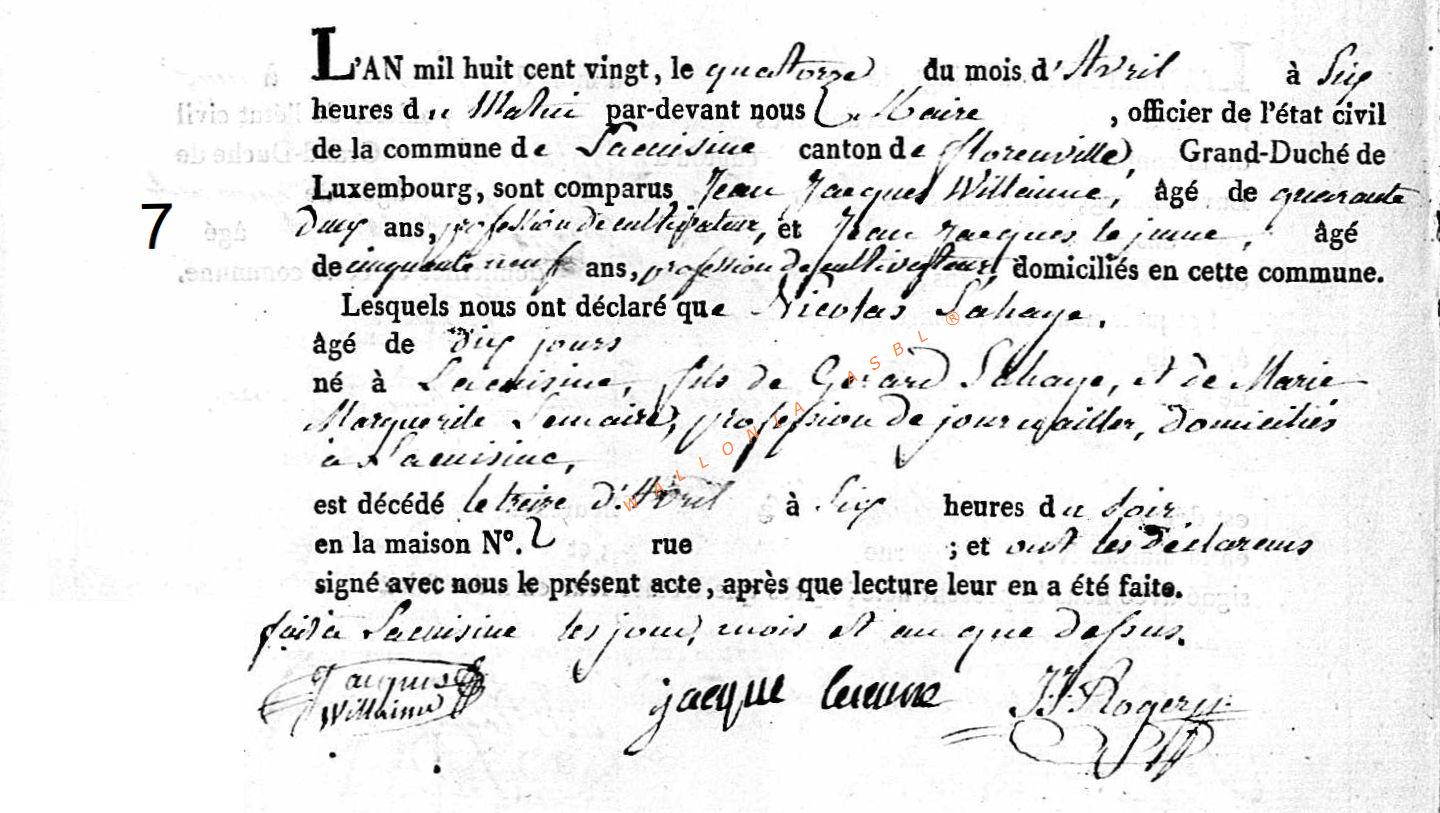 L'AN mil huit cent vingt, le quatorze du mois d'Avril à Six
heures du Matin par-devant nous Maire , officier de l'état civil
de la commune de Lacuisine canton de florenville, Grand-Duché de
Luxembourg, sont comparus Jean Jacques Willaime, âgé de quarante
7
Deux ans, profession de cultivateur, et Jean Jacques le jeune, âgé
de cinquante neuf ans, profession de cultivateur, domiciliés en cette commune.
Lesquels nous ont déclaré que Nicolas Lahaye,
âgé de Dix jours
né à Lacuisine, fils de Gerard Lahaye, et de Marie
Marguerite Lemaire, profession de journailler, domiciliés
a Lacuisine,
est décédé le treize d'Avril à Six heures du Soir
en la maison N°. 2 rue ; et ont les déclarans
signé avec nous le présent acte, après que lecture leur en a été faite.
fait a Lacuisine les jour, mois et an que dessus.
Jacques jacque leieune JJ Rogery
Willaime
WALLONIA ASBL ®